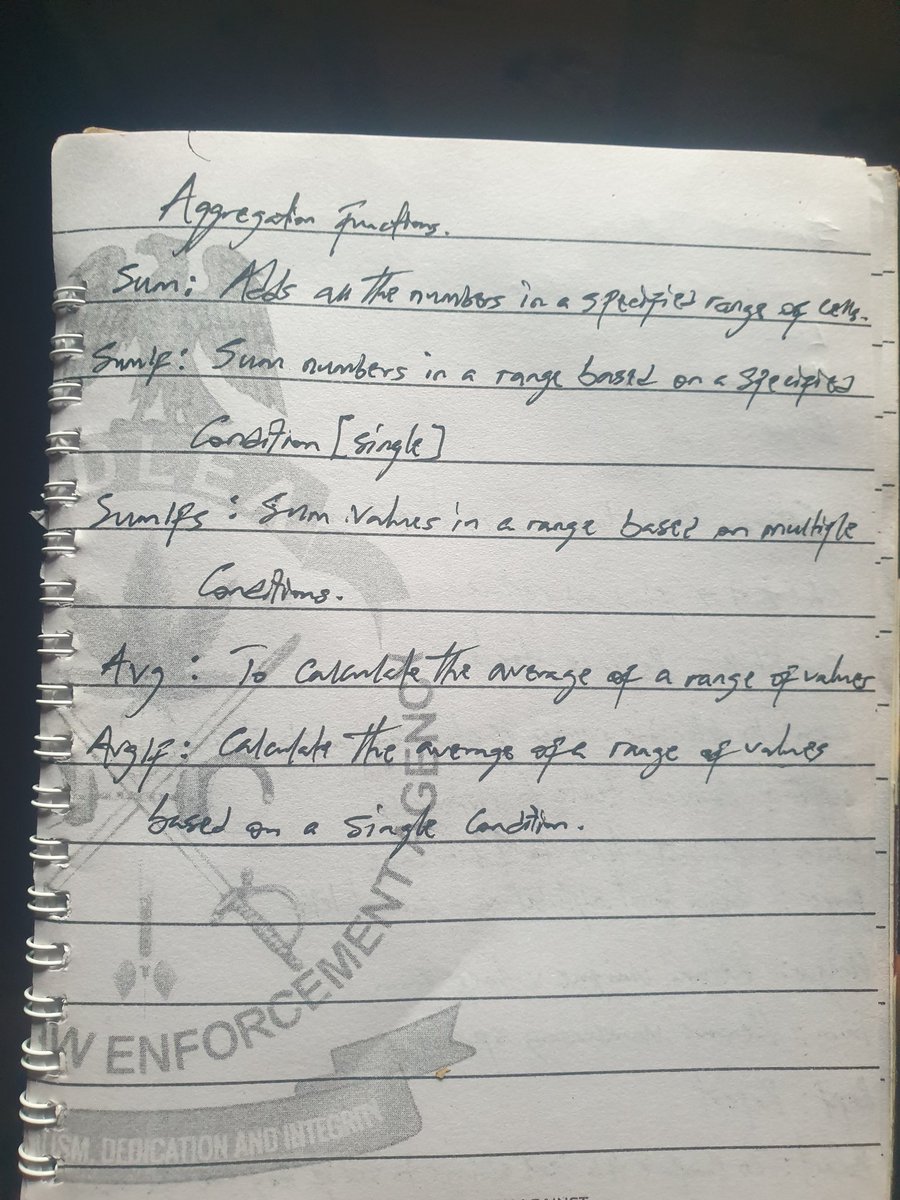 Aggregation Functions.
Sum: Adds all the numbers in a specified range of cells.
SumIf: Sum numbers in a range based on a specified
Condition [single]
SumIfs: Sum values in a range based on multiple
Conditions.
Avg: To calculate the average of a range of values
AvgIf: Calculate the average of a range of values
based on a single Condition.
DLE
W ENFORCEMENT AGENCY
ISM, DEDICATION AND INTEGRITY